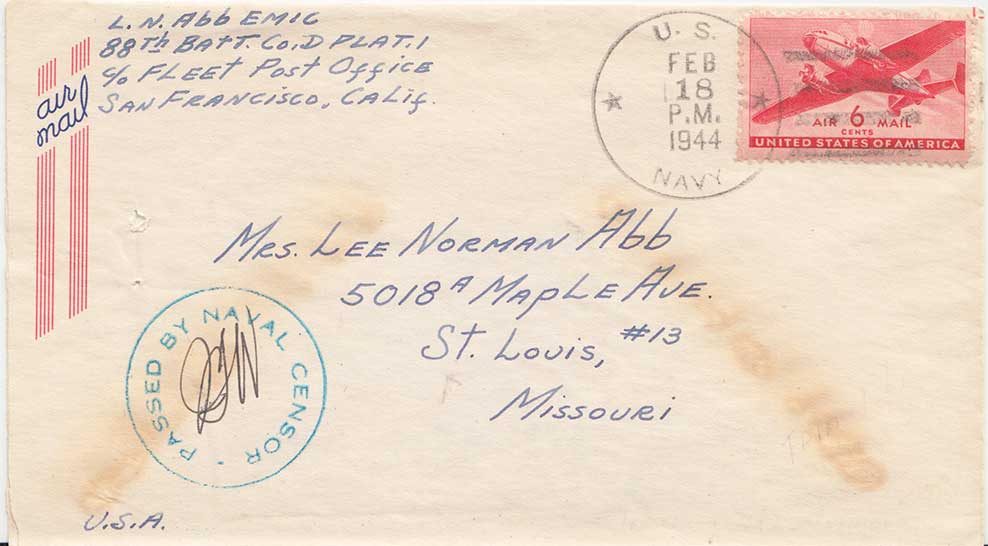 L. N. Abb EM1C
88th Batt. Co. D PLAT. 1
c/o Fleet Post Office
San Francisco, Calif.
air
mail
U. S.
FEB
18
P.M.
1944
NAVY
AIR 6 MAIL
CENTS
UNITED STATES OF AMERICA
Mrs. Lee Norman Abb
5018 A Maple Ave.
St. Louis, #13
Missouri
PASSED BY NAVAL CENSOR
U.S.A.